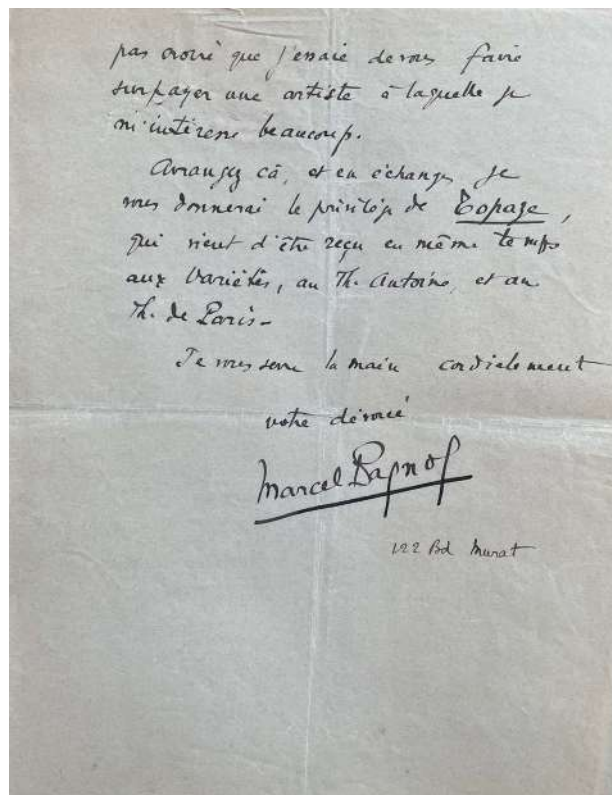 pas croire que j'essaie de vous faire
surpayer une artiste à laquelle je
m'intéresse beaucoup.
Arrangez ça, et en échange je
vous donnerai le privilège de Topaze,
qui vient d'être reçu en même temps
aux Variétés, au Th. Antoine, et au
Th. de Paris -
Je vous serre la main cordialement
votre dévoué
Marcel Pagnol
122 Bd Murat